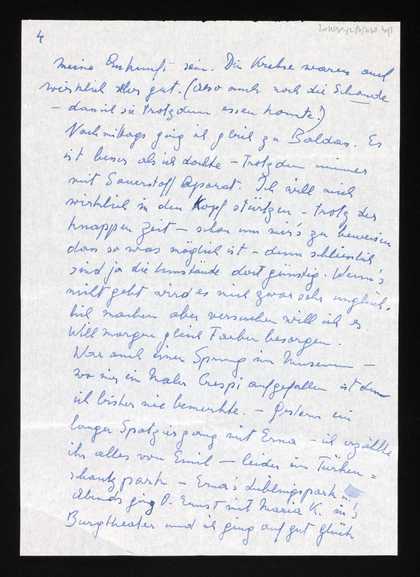 4
meine Ankunft sein. Die Krebse waren auch
wirklich sehr gut. (Also auch noch die Schande
– daß ich sie trotzdem essen konnte!)
Nachmittags ging ich gleich zu Baldas. Es
ist besser als ich dachte – trotzdem immer
mit Sauerstoff Apparat. Ich will mich
wirklich in den Kopf stürzen – trotz der
knappen Zeit – schon um mir's zu beweisen
dass so was möglich ist – denn schliesslich
sind ja die Umstände dort günstig. Wenn's
nicht geht wird es mich zwar sehr unglück,
lich machen aber versuchen will ich es
Will morgen gleich Farben besorgen.
War auch einen Sprung im Museum –
wo mir ein Maler Crespi aufgefallen ist den
ich bisher nie bemerkte. – Gestern ein
langer Spaziergang mit Erna – ich erzählte
ihr alles von Emil – leider im Türken=
schanzpark – Erna's Lieblingspark –
Abends ging O. Ernst mit Maria K. in's
Burgtheater und ich ging auf gut Glück